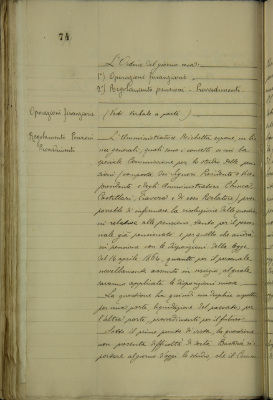 74
L'Ordine del giorno reca:
1°) Operazioni finanziarie
2°) Regolamento pensioni - Provvedimenti.
Operazioni finanziarie
(Vedi verbale a parte)
Regolamento Pensioni
Provvedimenti
L'Amministratore espone, in li-
nea generale, quali sono i concetti a cui la
speciale Commissione per lo studio delle pen-
sioni (composta dei Signori Presidente e Vice
presidente e degli Amministratori
e di esso Relatore)
di informare la risoluzione della questio-
ne relativa alle pensioni, tanto per il perso-
nale già pensionato e per quello che andrà
in pensione con le disposizioni della legge
del 16 aprile 1884, quanto per il personale
novellamente assunto in servizio, al quale
saranno applicate le disposizioni nuove.
La questione ha quindi un duplice aspetto
per una parte, liquidazione del passato; per
l'altra parte, provvedimenti per il futuro.
Sotto il primo punto di vista, la questione
non presenta difficoltà di sorta. Basterà ri-
portare al giorno d'oggi lo studio che il